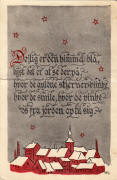 Dejlig er den himmel blå
lyst det er at se derpå,
hvor de gyldne stjerner blinke,
hvor de smile, hvor de vinke
os fra jorden op til sig